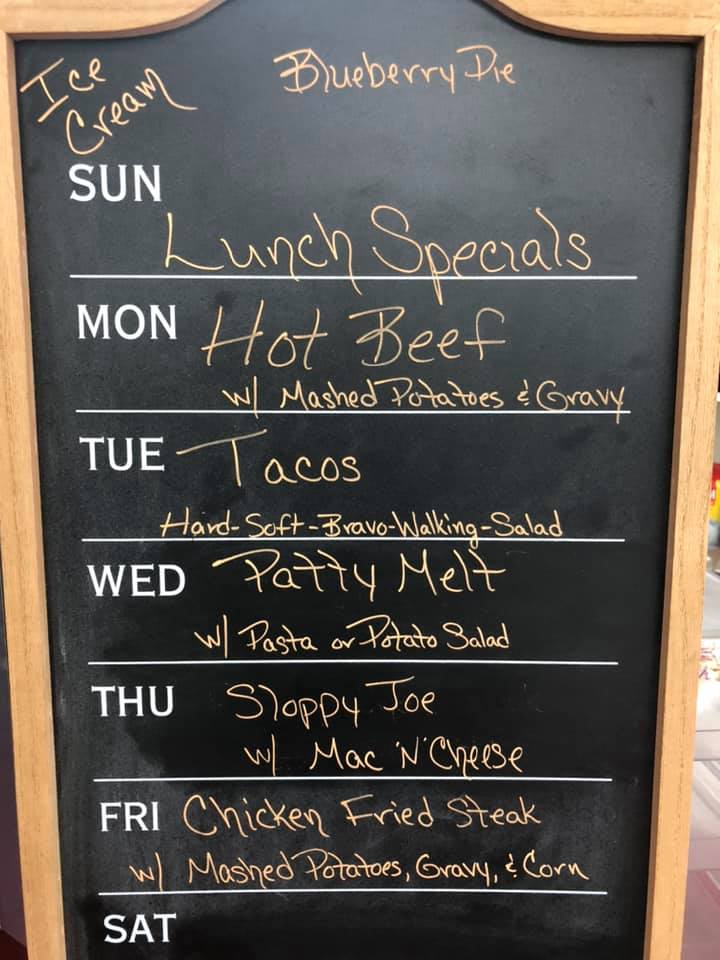 Ice Cream
Blueberry Pie
SUN
Lunch Specials
MON Hot Beef
w/ Mashed Potatoes & Gravy
TUE Tacos
Hard-Soft-Bravo-Walking-Salad
WED Patty Melt
w/ Pasta or Potato Salad
THU Sloppy Joe
w/ Mac 'N' Cheese
FRI Chicken Fried Steak
w/ Mashed Potatoes, Gravy, & Corn
SAT